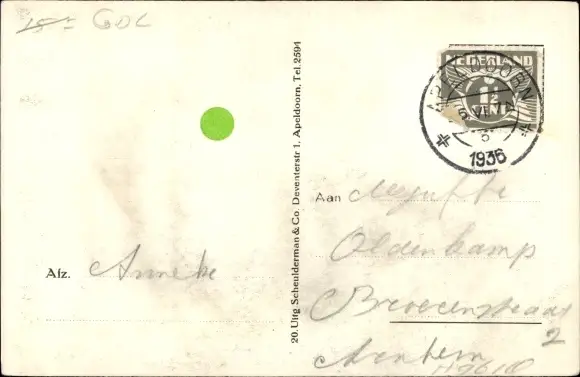 15 GDL
NEDERLAND
1½
CENT
APELDOORN
6.VI.7A
5
1936
20. Uitg Scheulderman & Co. Deventerstr 1, Apeldoorn, Tel. 2594
Aan Mejuffr
Oldenkamp
Afz. Anneke
2
Arnhem